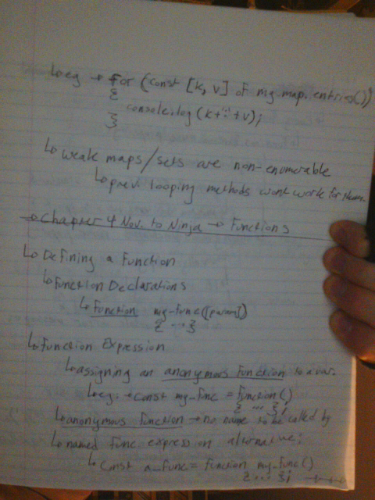 ↳ eg → for (const [k, v] of my-map.entries())
{
console.log(k+":"+v);
}
↳ weak maps/sets are non-enumerable
↳ prev. looping methods wont work for them.
→ Chapter 4 Nov. to Ninja → Functions
↳ Defining a Function
↳ Function Declarations
↳ Function my-func([params])
{ ... }
↳ Function Expression
↳ assigning an anonymous function to a var.
↳ eg. → const my-func = function()
{ ... };
↳ anonymous function → no name to be called by
↳ named func expression alternative:
↳ const a-func = function my-func()
{ ... };